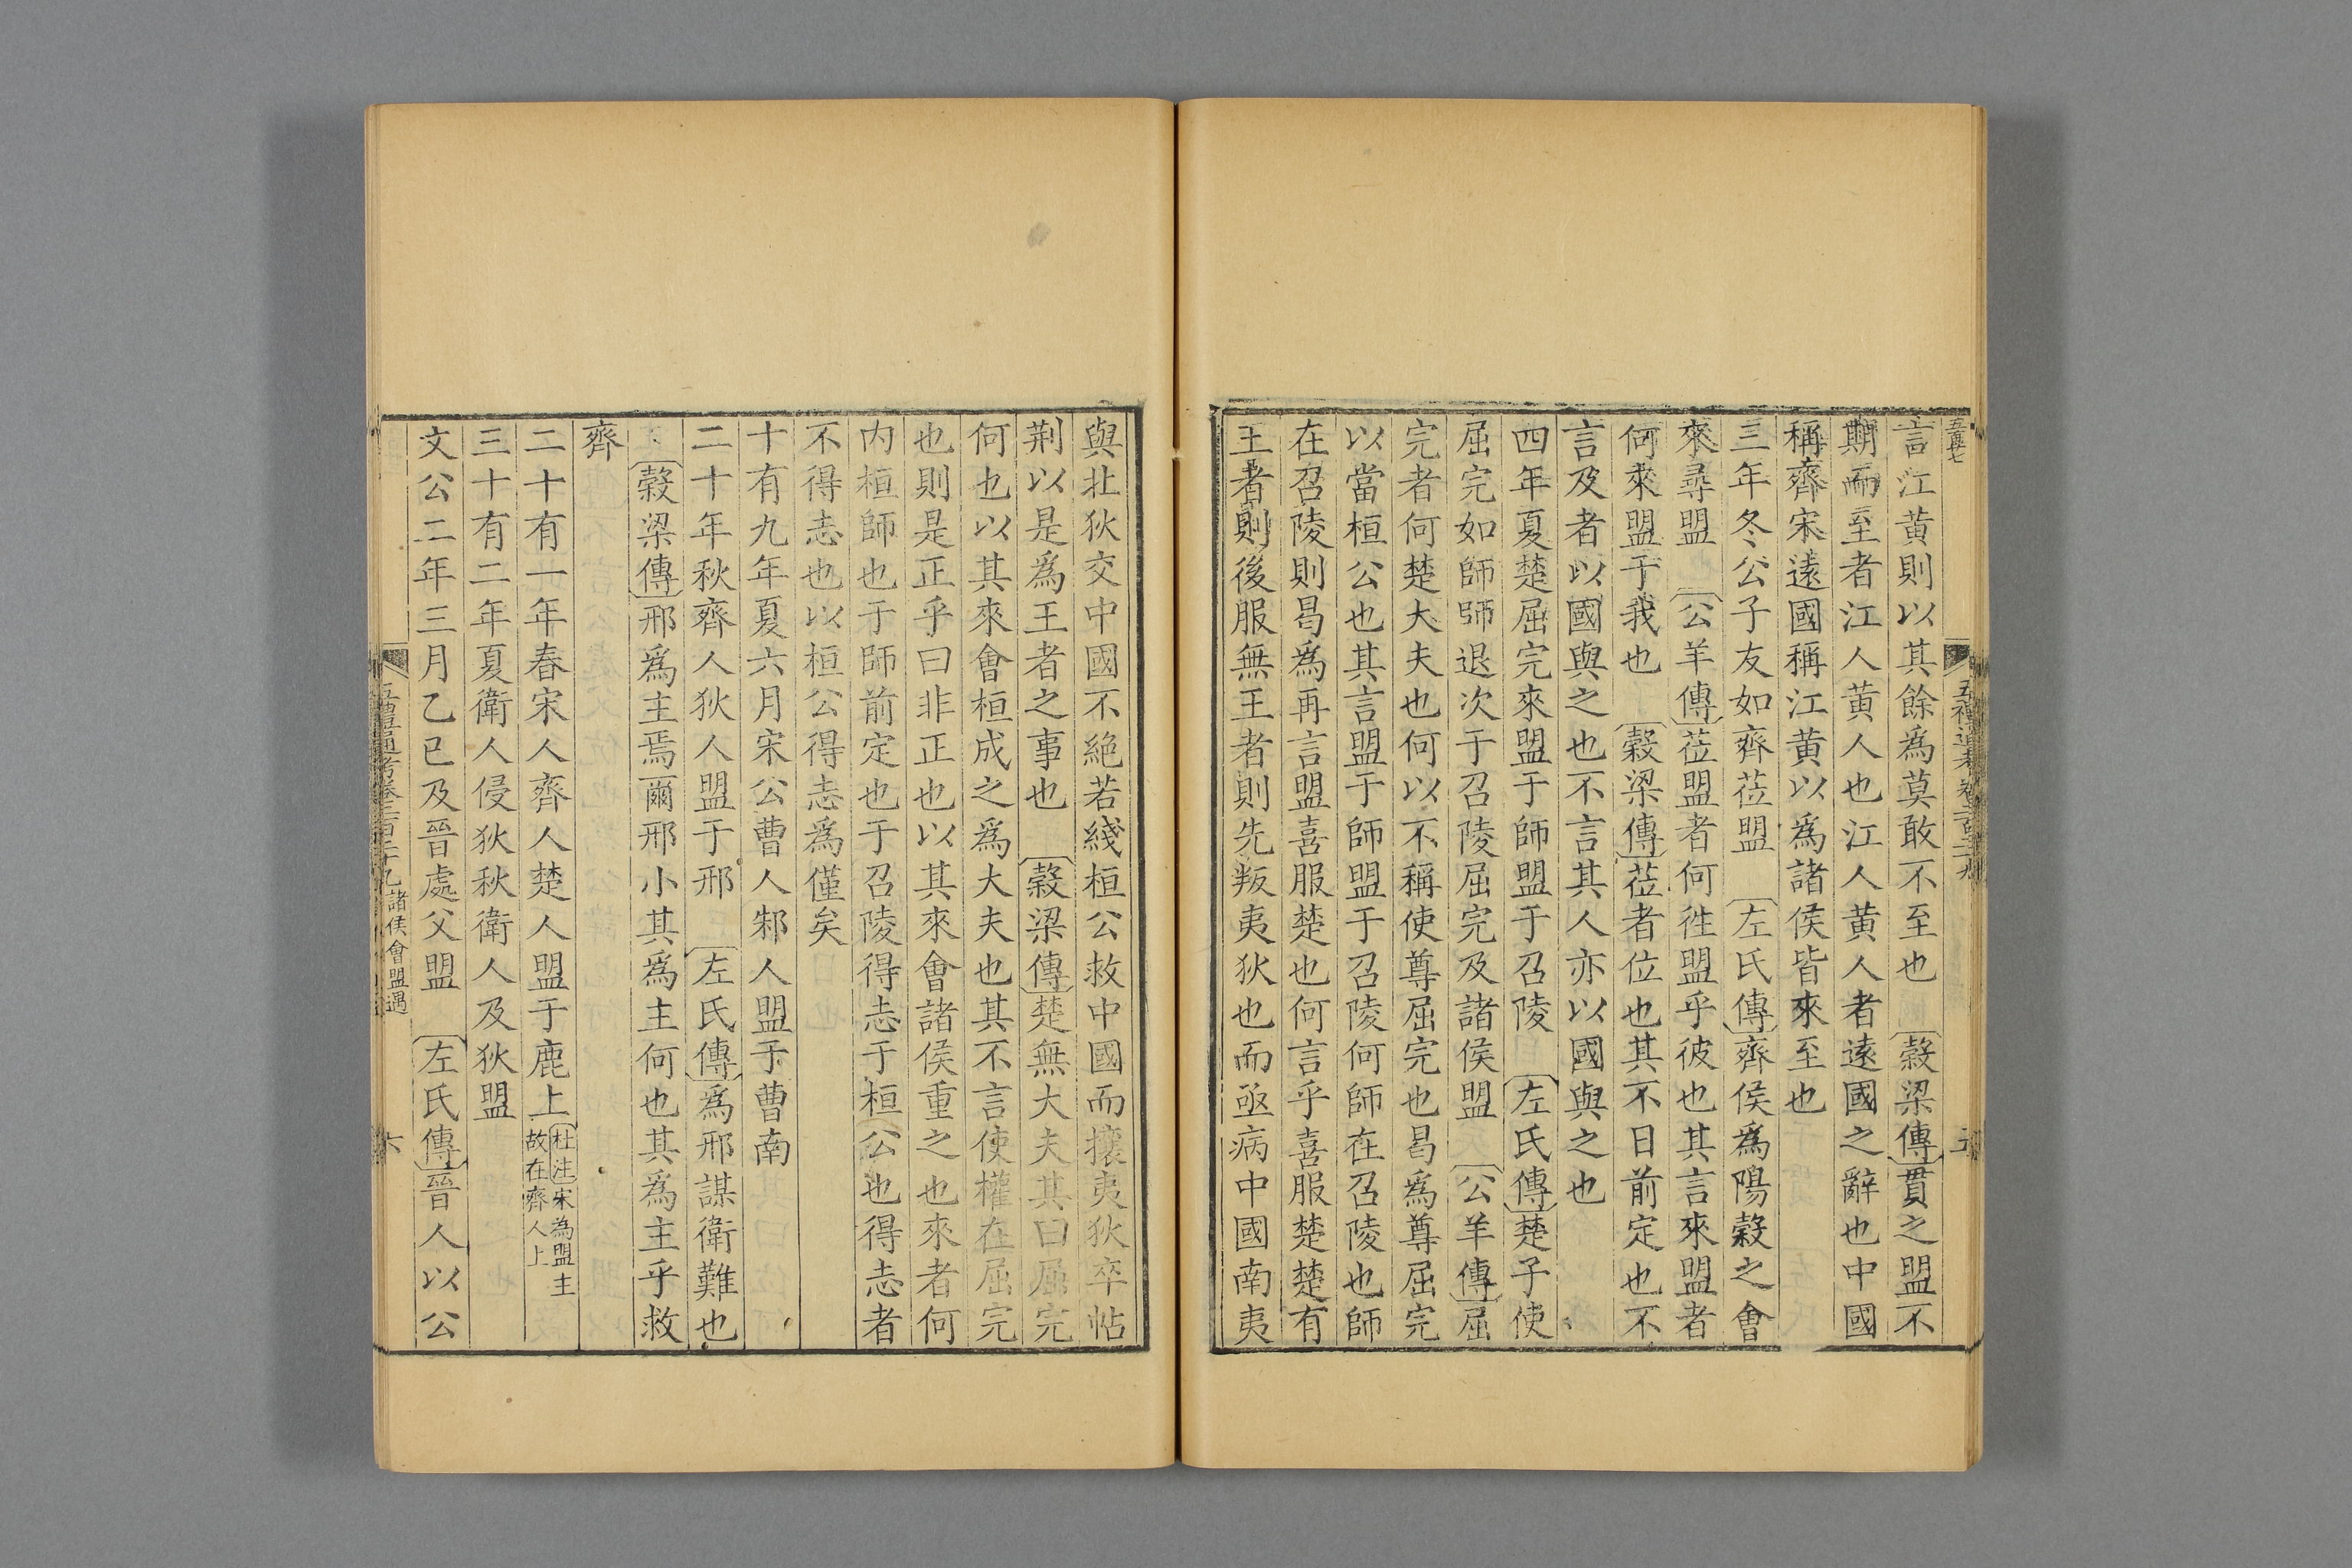 言江黃則以其餘為莫敢不至也　穀梁傳貫之盟不
期而至者江人黃人也江人黃人者遠國之辭也中國
稱齊宋遠國稱江黃以為諸侯皆來至也
三年冬公子友如齊莅盟　左氏傳齊侯為陽穀之會
來尋盟　公羊傳莅盟者何徃盟乎彼也其言來盟者
何來盟于我也　穀梁傳莅者位也其不日前定也不
言及者以國與之也不言其人亦以國與之也
四年夏楚屈完來盟于師盟于召陵　左氏傳楚子使
屈完如師師退次于召陵屈完及諸侯盟　公羊傳屈
完者何楚大夫也何以不稱使尊屈完也曷為尊屈完
以當桓公也其言盟于師盟于召陵何師在召陵也師
在召陵則曷為再言盟喜服楚也何言乎喜服楚楚有
王者則後服無王者則先叛夷狄也而亟病中國南夷
與北狄交中國不絕若綫桓公救中國而攘夷狄卒帖
荆以是為王者之事也　穀梁傳楚無大夫其曰屈完
何也以其來會桓成之為大夫也其不言使權在屈完
也則是正乎曰非正也以其來會諸侯重之也來者何
內桓師也于師前定也于召陵得志于桓公也得志者
不得志也以桓公得志為僅矣
十有九年夏六月宋公曹人邾人盟于曹南
二十年秋齊人狄人盟于邢　左氏傳為邢謀衛難也
穀梁傳邢為主焉爾邢小其為主何也其為主乎救
齊
二十有一年春宋人齊人楚人盟于鹿上杜注宋為盟主
故在齊人上
三十有二年夏衛人侵狄秋衛人及狄盟
文公二年三月乙巳及晉處父盟　左氏傳晉人以公
五禮通考卷二百二十九 諸侯會盟遇
六